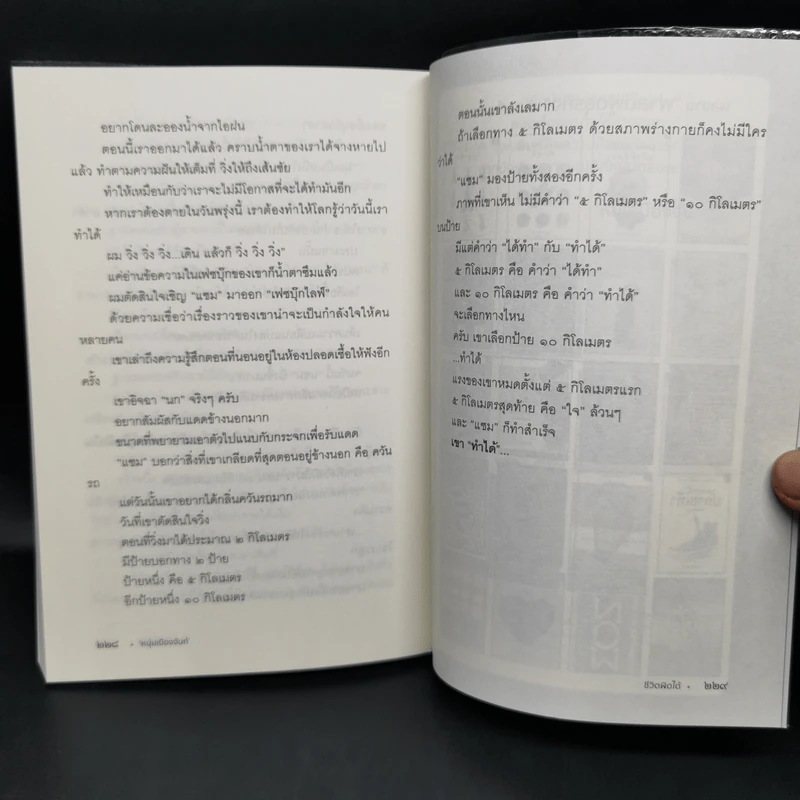 อยากโดนละอองน้ำจากไอฝน
ตอนนี้เราออกมาได้แล้ว คราบน้ำตาของเราได้จางหายไป
แล้ว ทำตามความฝันให้เต็มที่ วิ่งให้ถึงเส้นชัย
ทำให้เหมือนกับว่าเราจะไม่มีโอกาสที่จะได้ทำมันอีก
หากเราต้องตายในวันพรุ่งนี้ เราต้องทำให้โลกรู้ว่าวันนี้เรา
ทำได้
ผม วิ่ง วิ่ง วิ่ง...เดิน แล้วก็ วิ่ง วิ่ง วิ่ง”
แค่อ่านข้อความในเฟซบุ๊กของเขาก็น้ำตาซึมแล้ว
ผมตัดสินใจเชิญ “แซม” มาออก “เฟซบุ๊กไลฟ์”
ด้วยความเชื่อว่าเรื่องราวของเขาน่าจะเป็นกำลังใจให้คน
หลายคน
เขาเล่าถึงความรู้สึกตอนที่นอนอยู่ในห้องปลอดเชื้อให้ฟังอีก
ครั้ง
เขาอิจฉา “นก” จริงๆ ครับ
อยากสัมผัสกับแดดข้างนอกมาก
ขนาดที่พยายามเอาตัวไปแนบกับกระจกเพื่อรับแดด
“แซม” บอกว่าสิ่งที่เขาเกลียดที่สุดตอนอยู่ข้างนอก คือ ควัน
รถ
แต่วันนั้นเขาอยากได้กลิ่นควันรถมาก
วันที่เขาตัดสินใจวิ่ง
ตอนที่วิ่งมาได้ประมาณ ๒ กิโลเมตร
มีป้ายบอกทาง ๒ ป้าย
ป้ายหนึ่ง คือ ๕ กิโลเมตร
อีกป้ายหนึ่ง ๑๐ กิโลเมตร
๒๒๘ • หนุ่มเมืองจันท์
ตอนนั้นเขาลังเลมาก
ถ้าเลือกทาง ๕ กิโลเมตร ด้วยสภาพร่างกายก็คงไม่มีใคร
ว่าได้
“แซม” มองป้ายทั้งสองอีกครั้ง
ภาพที่เขาเห็น ไม่มีคำว่า “๕ กิโลเมตร” หรือ “๑๐ กิโลเมตร”
บนป้าย
มีแต่คำว่า “ได้ทำ” กับ “ทำได้”
๕ กิโลเมตร คือ คำว่า “ได้ทำ”
และ ๑๐ กิโลเมตร คือ คำว่า “ทำได้”
จะเลือกทางไหน
ครับ เขาเลือกป้าย ๑๐ กิโลเมตร
...ทำได้
แรงของเขาหมดตั้งแต่ ๕ กิโลเมตรแรก
๕ กิโลเมตรสุดท้าย คือ “ใจ” ล้วนๆ
และ “แซม” ก็ทำสำเร็จ
เขา “ทำได้”...
ชีวิตผิดได้ • ๒๒๙